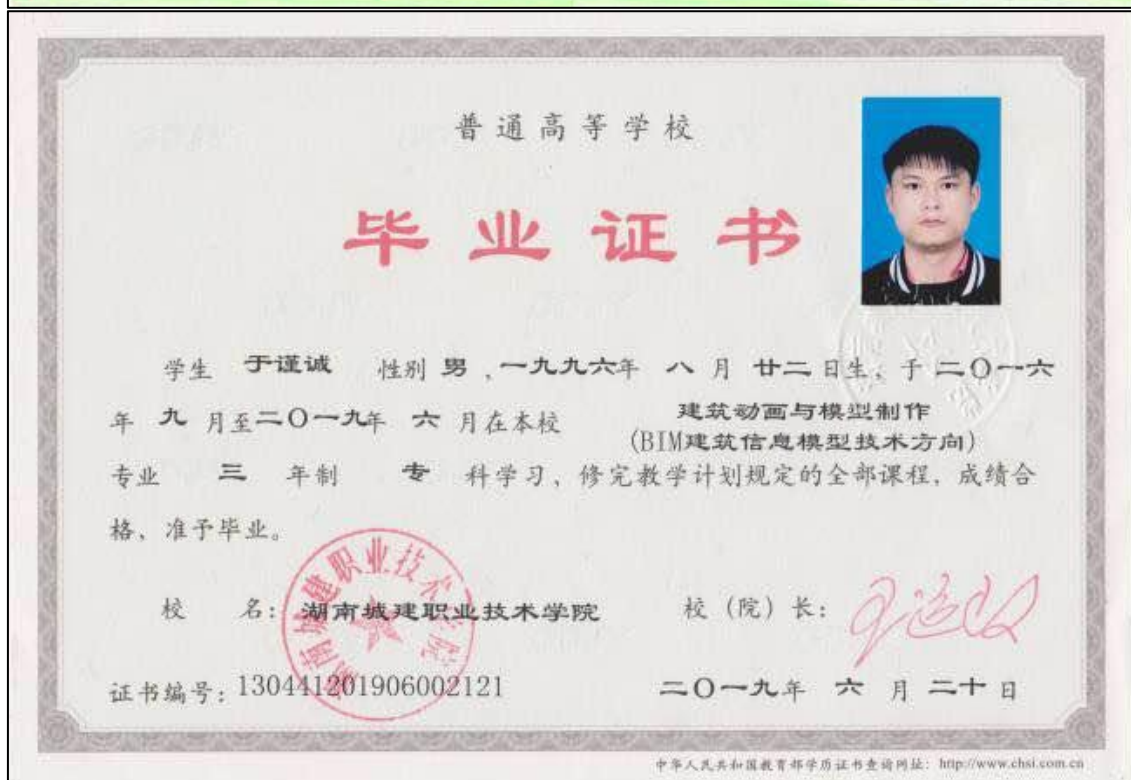 普通高等学校
毕业证书
学生 于谨诚 性别 男 、一九九六年 八 月 廿二 日生、于 二〇一六
年 九 月至二〇一九年 六 月在本校 建筑动画与模型制作
(BIM建筑信息模型技术方向)
专业 三 年制 专 科学习、修完教学计划规定的全部课程、成绩合
格、准予毕业。
校 名: 湖南城建职业技术学院 校(院)长:
湖南城建职业技术学院
证书编号: 130441201906002121 二〇一九年 六 月 二十 日
中华人民共和国教育部学历证书查询网址: http://www.chsi.com.cn